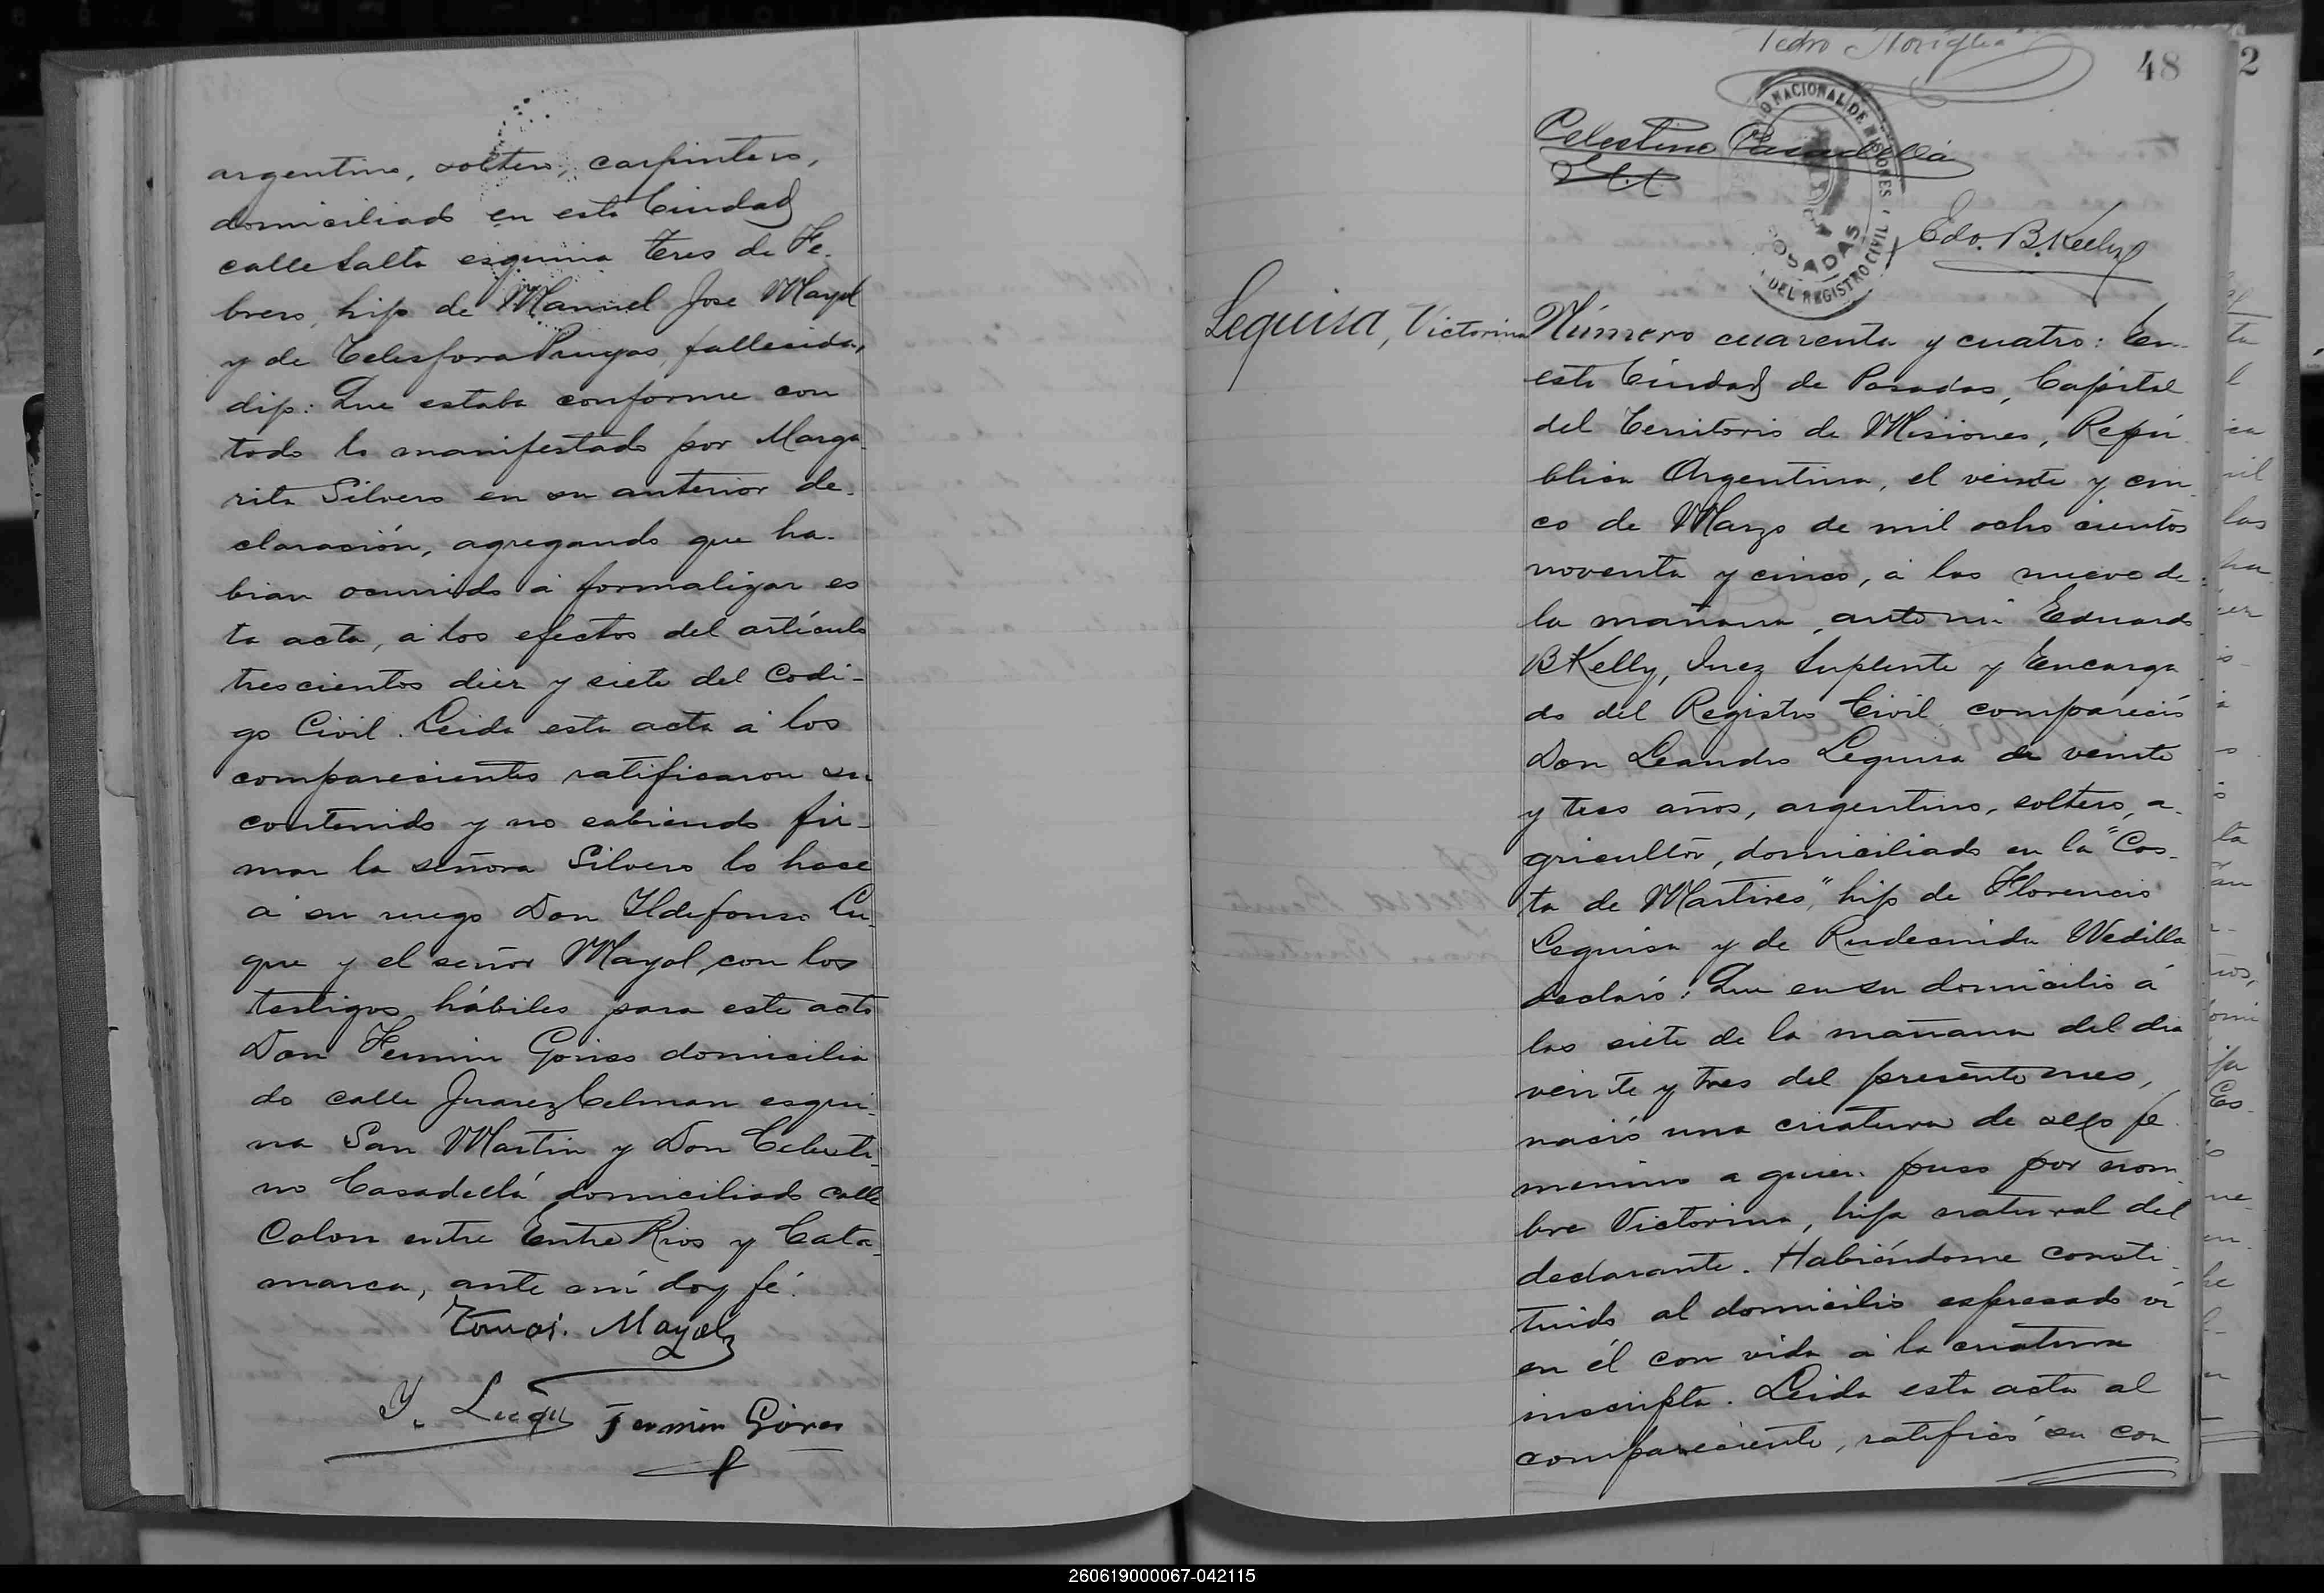 argentino, soltero, carpintero,
domiciliado en esta Ciudad
calle Salta esquina Tres de Fe-
brero, hijo de Manuel Jose Mayol
y de Telesfora Pruyas, fallecida,
dijo: Que estaba conforme con
todo lo manifestado por Marga-
rita Silvero en su anterior de-
claración, agregando que ha-
bian ocurrido á formalizar es
ta acta, a los efectos del artículo
trescientos diez y siete del Codi-
go Civil. Leida esta acta á los
comparecientes ratificaron su
contenido y no sabiendo fir-
mar la señora Silvero lo hace
á su ruego Don Ildefonso Lu-
que y el señor Mayol, con los
testigos hábiles para este acto
Don Fermin Goires domicilia
do calle Juarez Celman esqui-
na San Martin y Don Celesti-
no Casadellá domiciliado calle
Colon entre Entre Rios y Cata-
marca, ante mí doy fé.
Tomas. Mayol
Y. Luque Fermin
48
2
Pedro
Celestino Casadellá
NACIONAL DE MISIONES
POSADAS
DEL REGISTRO CIVIL
Edo. B. Kelly
Lequisa, Victorina
Número cuarenta y cuatro: En
esta Ciudad de Posadas, Capital
del Territorio de Misiones, Repú
blica Argentina, el veinte y cin
co de Marzo de mil ocho cientos
noventa y cinco, á las nueve de
la mañana, ante mi Eduardo
B Kelly, Juez Suplente y Encarga
do del Registro Civil compareció
Don Leandro Lequisa de veinte
y tres años, argentino, soltero, a-
gricultor, domiciliado en la "Cos-
ta de Martires," hijo de Florencio
Lequisa y de Rudecinda Wedilla
declaró: Que en su domicilio á
las siete de la mañana del dia
veinte y tres del presente mes,
nació una criatura de sexo fe
menino a quien puso por nom
bre Victorina, hija natural del
declarante. Habiéndome consti
tuido al domicilio espresado ví
en él con vida á la criatura
inscripta. Leida esta acta al
compareciente, ratificó su con